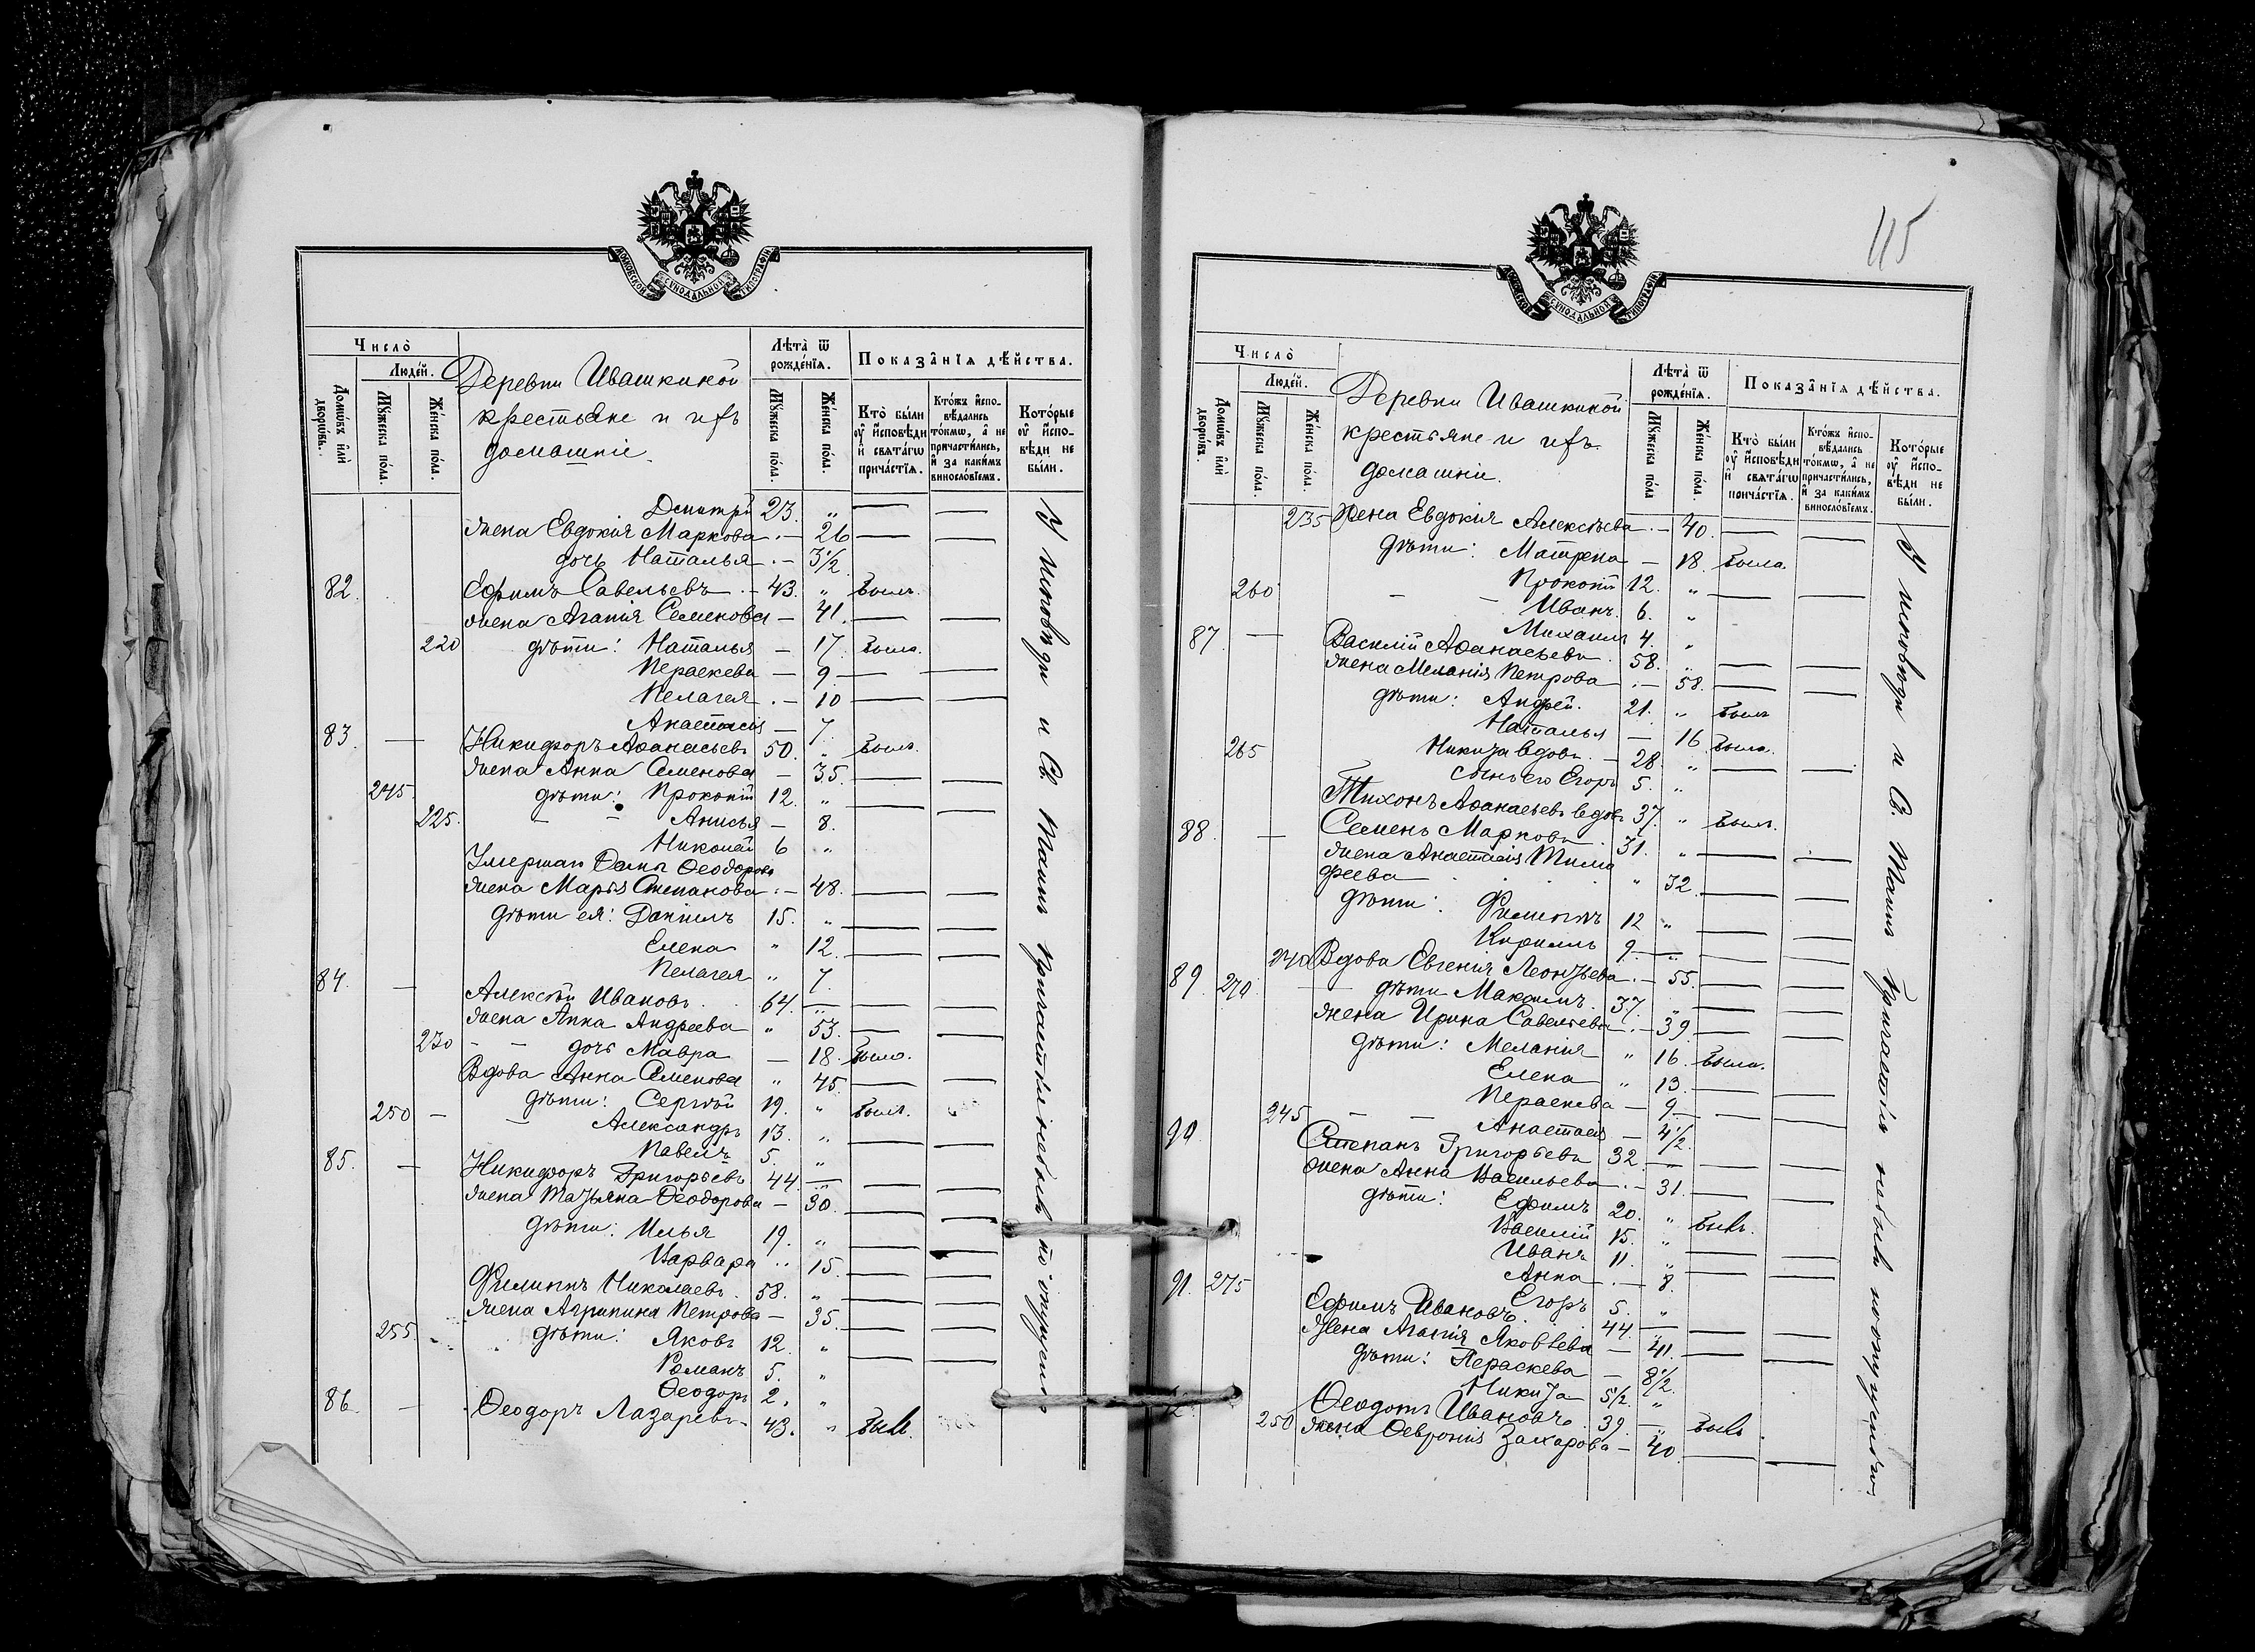 МОСКОВСКОЙ СѴНОДАЛЬНОЙ ТИПОГРАФІИ
Число̀
Людей.
Домѡвъ и҆лѝ дворѡвъ.
Мꙋ́жеска по́ла.
Же́нска по́ла.
Деревни Ивашкиной
крестьяне и ихъ
домашніе.
Лѣ́та ѿ рожде́нїѧ.
Мꙋ́жеска по́ла.
Же́нска по́ла.
Показа̂нїѧ дѣ́йства.
Кто̀ бы́ли оу҆ и҆́сповѣди и҆ свѧта́гѡ причастїѧ.
Кто́жъ и҆спо-вѣдались то́кмѡ, а҆ не причасти́лись, и҆ за каки́мъ винослові́емъ.
Кото́рые оу҆ и҆́спо-вѣди не бы́ли.
Дмитрій 23. „ — —
жена Евдокія Маркова . — 26 — —
дочь Наталья . — 3½
82. Ефимъ Савельевъ . — 43. „ былъ.
жена Агапія Семенова — 41. — —
220 дѣти: Наталья — 17. была.
Пераскева — 9. — —
Пелагея . — 10 — —
Анастасія — 7.
83. — Никифоръ Аѳанасьевъ 50. „ былъ.
жена Анна Семенова — 35. — —
245. дѣти: Прокопій 12. „ — —
225. — — Анисья — 8.
Николай 6 „
Умершаго Ѳеодорова
жена Марѳа Степанова . — 48. — —
дѣти ея: Даніилъ 15. „ — —
Елена „ 12. — —
Пелагея „ 7.
84. — Алексѣй Ивановъ . 64. „ — —
жена Анна Андреева „ 53. — —
230 — — дочь Мавра — 18. была.
Вдова Анна Семенова „ 45 — —
дѣти: Сергѣй 19. „ былъ.
250 — — Александръ 13. „ — —
Павелъ 5. „
85. — Никифоръ Григорьевъ 44. — — —
жена Татьяна Ѳеодорова — 30. — —
дѣти: Илья 19. „ — —
Варвара „ 15. — —
Филиппъ Николаевъ . 58. „ — —
жена Агрипина Петрова — 35. — —
255. дѣти: Яковъ 12. „ — —
Романъ 5. „
Ѳеодоръ 2. „
86. — Ѳеодоръ Лазаревъ — 43. „ былъ.
У исповѣди и Св. Таинъ Причастія небыли по опущенію
115
МОСКОВСКОЙ СѴНОДАЛЬНОЙ ТИПОГРАФІИ
Число̀
Людей.
Домѡвъ и҆лѝ дворѡвъ.
Мꙋ́жеска по́ла.
Же́нска по́ла.
Деревни Ивашкиной
крестьяне и ихъ
домашніе.
Лѣ́та ѿ рожде́нїѧ.
Мꙋ́жеска по́ла
Же́нска по́ла.
Показа̂нїѧ дѣ́йства.
Кто̀ бы́ли оу҆ и҆́сповѣди и҆ свѧта́гѡ причастїѧ.
Кто́жъ и҆спо-вѣдались то́кмѡ, а҆ не причасти́лись, и҆ за каки́мъ винослові́емъ.
Кото́рые оу҆ и҆́спо-вѣди не бы́ли.
235 Жена Евдокія Алексѣева . — 40. — —
дѣти: Матрена — 18. была.
260 Прокопій 12. „ — —
— — Иванъ 6. „
Михаилъ 4. „
87. — Василій Аѳанасьевъ . 58. „ — —
жена Меланія Петрова . — 58. — —
дѣти: Андрей. 21. „ былъ
Наталья — 16 была.
265 Никита вдовъ. — 28. „ — —
сынъ его Егоръ 5. „
Тихонъ Аѳанасьевъ вдовъ 37. „ былъ.
88. — Семенъ Марковъ . 31. „ — —
жена Анастасія Тимо
феева . . . „ 32. — —
дѣти: Филиппъ 12 „ — —
Кириллъ 9. „ —
240 Вдова Евгенія Леонтьева . — 55. — —
89. 270 — дѣти Максимъ. 37. „ — —
жена Ирина Савельева . — 39. — —
дѣти: Меланія „ 16 была.
Елена „ 13. — —
Пераскева — 9. — —
245 — — Анастасія — 4½
90 Степанъ Григорьевъ 32. „ — —
жена Анна Васильева . — 31. — —
дѣти: Ефимъ 20. „ былъ.
Василій 15. „ — —
Иванъ 11. „ — —
Анна . — 8.
91. 275 Егоръ 5. „
Ефимъ Ивановъ. 44. „ — —
Жена Агапія Яковлева — 41. — —
дѣти: Пераскева — 8½.
Никита 5½. „
Ѳеодотъ Ивановъ. 39. „ былъ.
250 жена Ѳевронія Захарова — 40. — —
У исповѣди и Св. Таинъ Причастія небыли по опущенію.